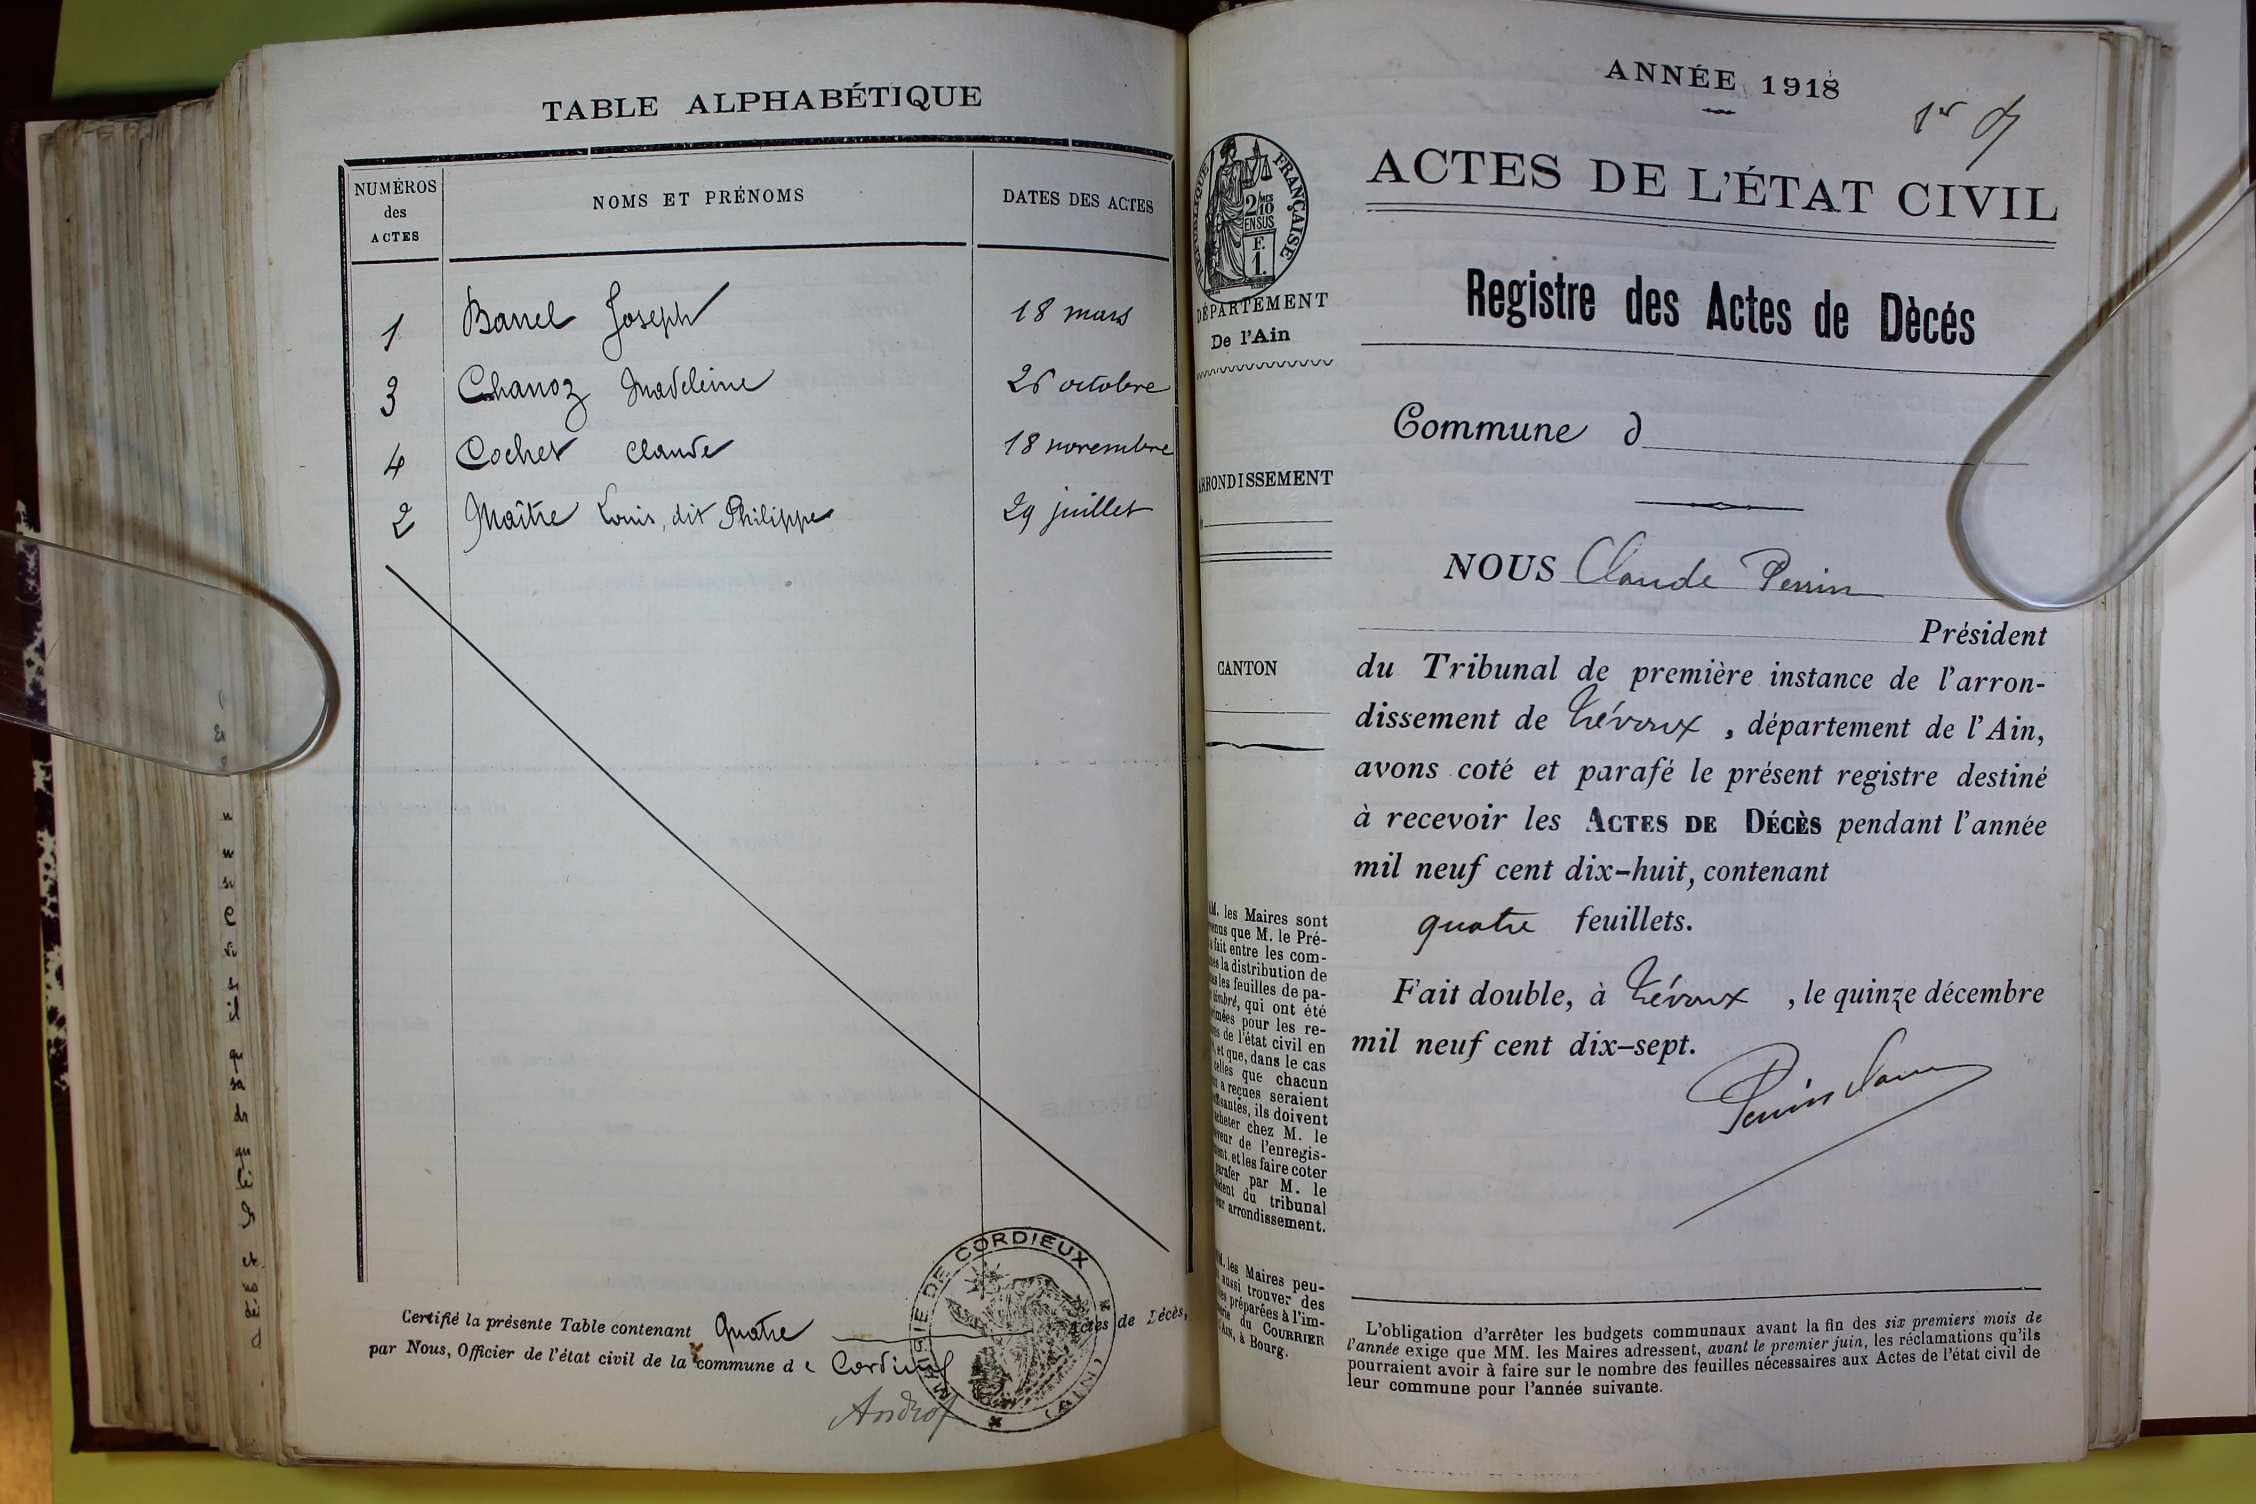 TABLE ALPHABÉTIQUE
NUMÉROS des ACTES
NOMS ET PRÉNOMS
DATES DES ACTES
1 Banel Joseph 18 mars
3 Chanoz Madeleine 26 octobre
4 Cochet Claude 18 novembre
2 Maître Louis, dit Philippe 29 juillet
Certifié la présente Table contenant quatre Actes de Décès,
par Nous, Officier de l'état civil de la commune de Cordieux
MAIRIE DE CORDIEUX (AIN)
ANNÉE 1918
1er
ACTES DE L'ÉTAT CIVIL
RÉPUBLIQUE FRANÇAISE
2/10 MES
EN SUS
F. 1.
Registre des Actes de Dècés
DÉPARTEMENT
De l'Ain
Commune d
ARRONDISSEMENT
NOUS Claude Perrin
Président
CANTON
du Tribunal de première instance de l'arron-
dissement de Trévoux, département de l'Ain,
avons coté et parafé le présent registre destiné
à recevoir les ACTES DE DÉCÈS pendant l'année
mil neuf cent dix-huit, contenant
quatre feuillets.
Fait double, à Trévoux, le quinze décembre
mil neuf cent dix-sept.
MM. les Maires sont
que M. le Pré-
fait entre les com-
la distribution de
les feuilles de pa-
timbré, qui ont été
pour les re-
de l'état civil en
et que, dans le cas
celles que chacun
a reçues seraient
ils doivent
acheter chez M. le
de l'enregis-
et les faire coter
parafer par M. le
du tribunal
arrondissement.
MM. les Maires peu-
aussi trouver des
préparées à l'im-
du COURRIER
L'AIN, à Bourg.
L'obligation d'arrêter les budgets communaux avant la fin des six premiers mois de
l'année exige que MM. les Maires adressent, avant le premier juin, les réclamations qu'ils
pourraient avoir à faire sur le nombre des feuilles nécessaires aux Actes de l'état civil de
leur commune pour l'année suivante.